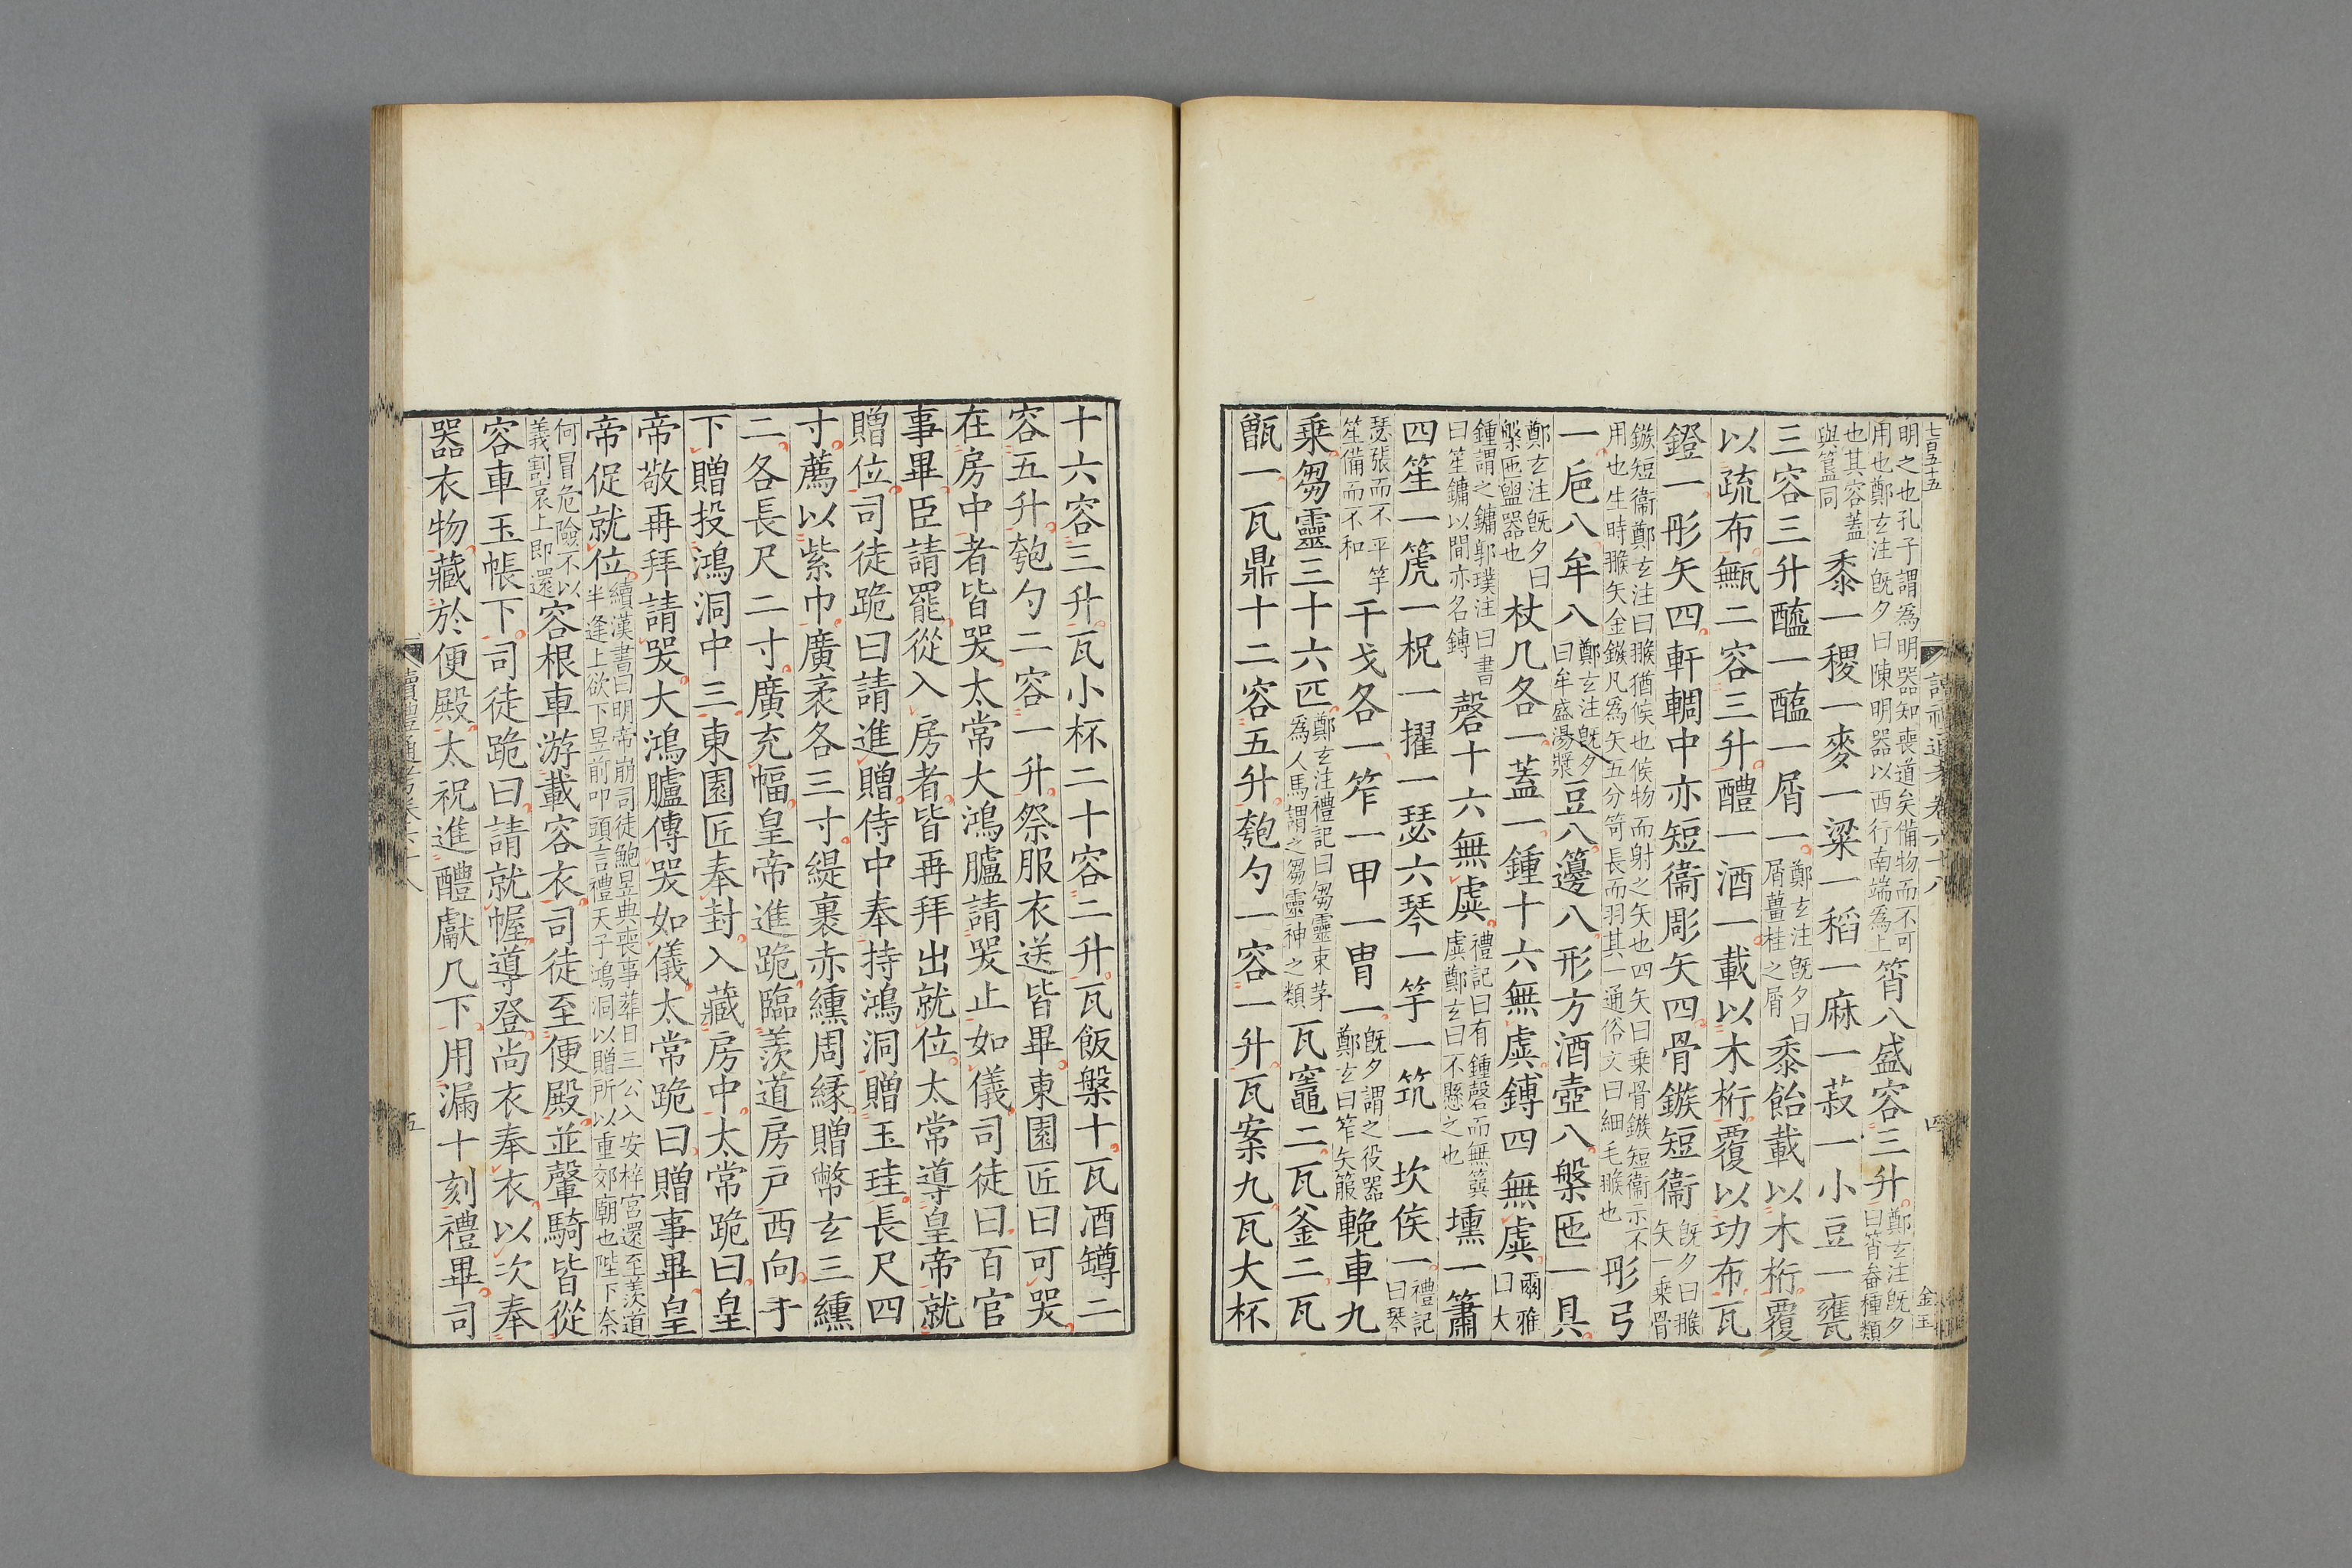 七百五十五
明之也孔子謂爲明器知喪道矣備物而不可
用也鄭玄注既夕曰陳明器以西行南端爲上筲八盛容三升鄭玄注既夕
曰筲畚種類
也其容蓋
與簋同黍一稷一麥一粱一稻一麻一菽一小豆一甕
三容三升醯一醢一屑一鄭玄注既夕曰
屑薑桂之屑黍飴載以木桁覆
以疏布甒二容三升醴一酒一載以木桁覆以功布瓦
鐙一彤矢四軒輖中亦短衞彫矢四骨鏃短衞既夕曰猴
矢一乗骨
鏃短衞鄭玄注曰猴猶候也候物而射之矢也四矢曰乗骨鏃短衞示不
用也生時猴矢金鏃凡爲矢五分笴長而羽其一通俗文曰細毛猴也彤弓
一巵八牟八鄭玄注既夕
曰牟盛湯漿豆八籩八形方酒壺八槃匜一具
鄭玄注既夕曰
槃匜盥器也杖几各一蓋一鍾十六無虡鎛四無虡爾雅
曰大
鍾謂之鏞郭璞注曰書
曰笙鏞以間亦名鎛磬十六無虡禮記曰有鍾磬而無簨
虡鄭玄曰不懸之也壎一簫
四笙一箎一柷一㩁一瑟六琴一竽一筑一坎侯一禮記
曰琴
瑟張而不平竽
笙備而不和干戈各一笮一甲一冑一既夕謂之役器
鄭玄曰笮矢箙輓車九
乗芻靈三十六匹鄭玄注禮記曰芻靈束茅
爲人馬謂之芻靈神之類瓦竈二瓦釜二瓦
甑一瓦鼎十二容五升匏勺一容一升瓦案九瓦大杯
十六容三升瓦小杯二十容二升瓦飯槃十瓦酒罇二
容五升匏勺二容一升祭服衣送皆畢東園匠曰可哭
在房中者皆哭太常大鴻臚請哭止如儀司徒曰百官
事畢臣請罷從入房者皆再拜出就位太常導皇帝就
贈位司徒跪曰請進贈侍中奉持鴻洞贈玉珪長尺四
寸薦以紫巾廣袤各三寸緹裏赤纁周緣贈幣玄三纁
二各長尺二寸廣充幅皇帝進跪臨羨道房戸西向手
下贈投鴻洞中三東園匠奉封入藏房中太常跪曰皇
帝敬再拜請哭大鴻臚傳哭如儀太常跪曰贈事畢皇
帝促就位續漢書曰明帝崩司徒鮑昱典喪事葬日三公入安梓宮還至羨道
半逢上欲下昱前叩頭言禮天子鴻洞以贈所以重郊廟也陛下奈
何冒危險不以
義割哀上即還容根車游載容衣司徒至便殿並轝騎皆從
容車玉帳下司徒跪曰請就幄導登尚衣奉衣以次奉
器衣物藏於便殿太祝進醴獻几下用漏十刻禮畢司